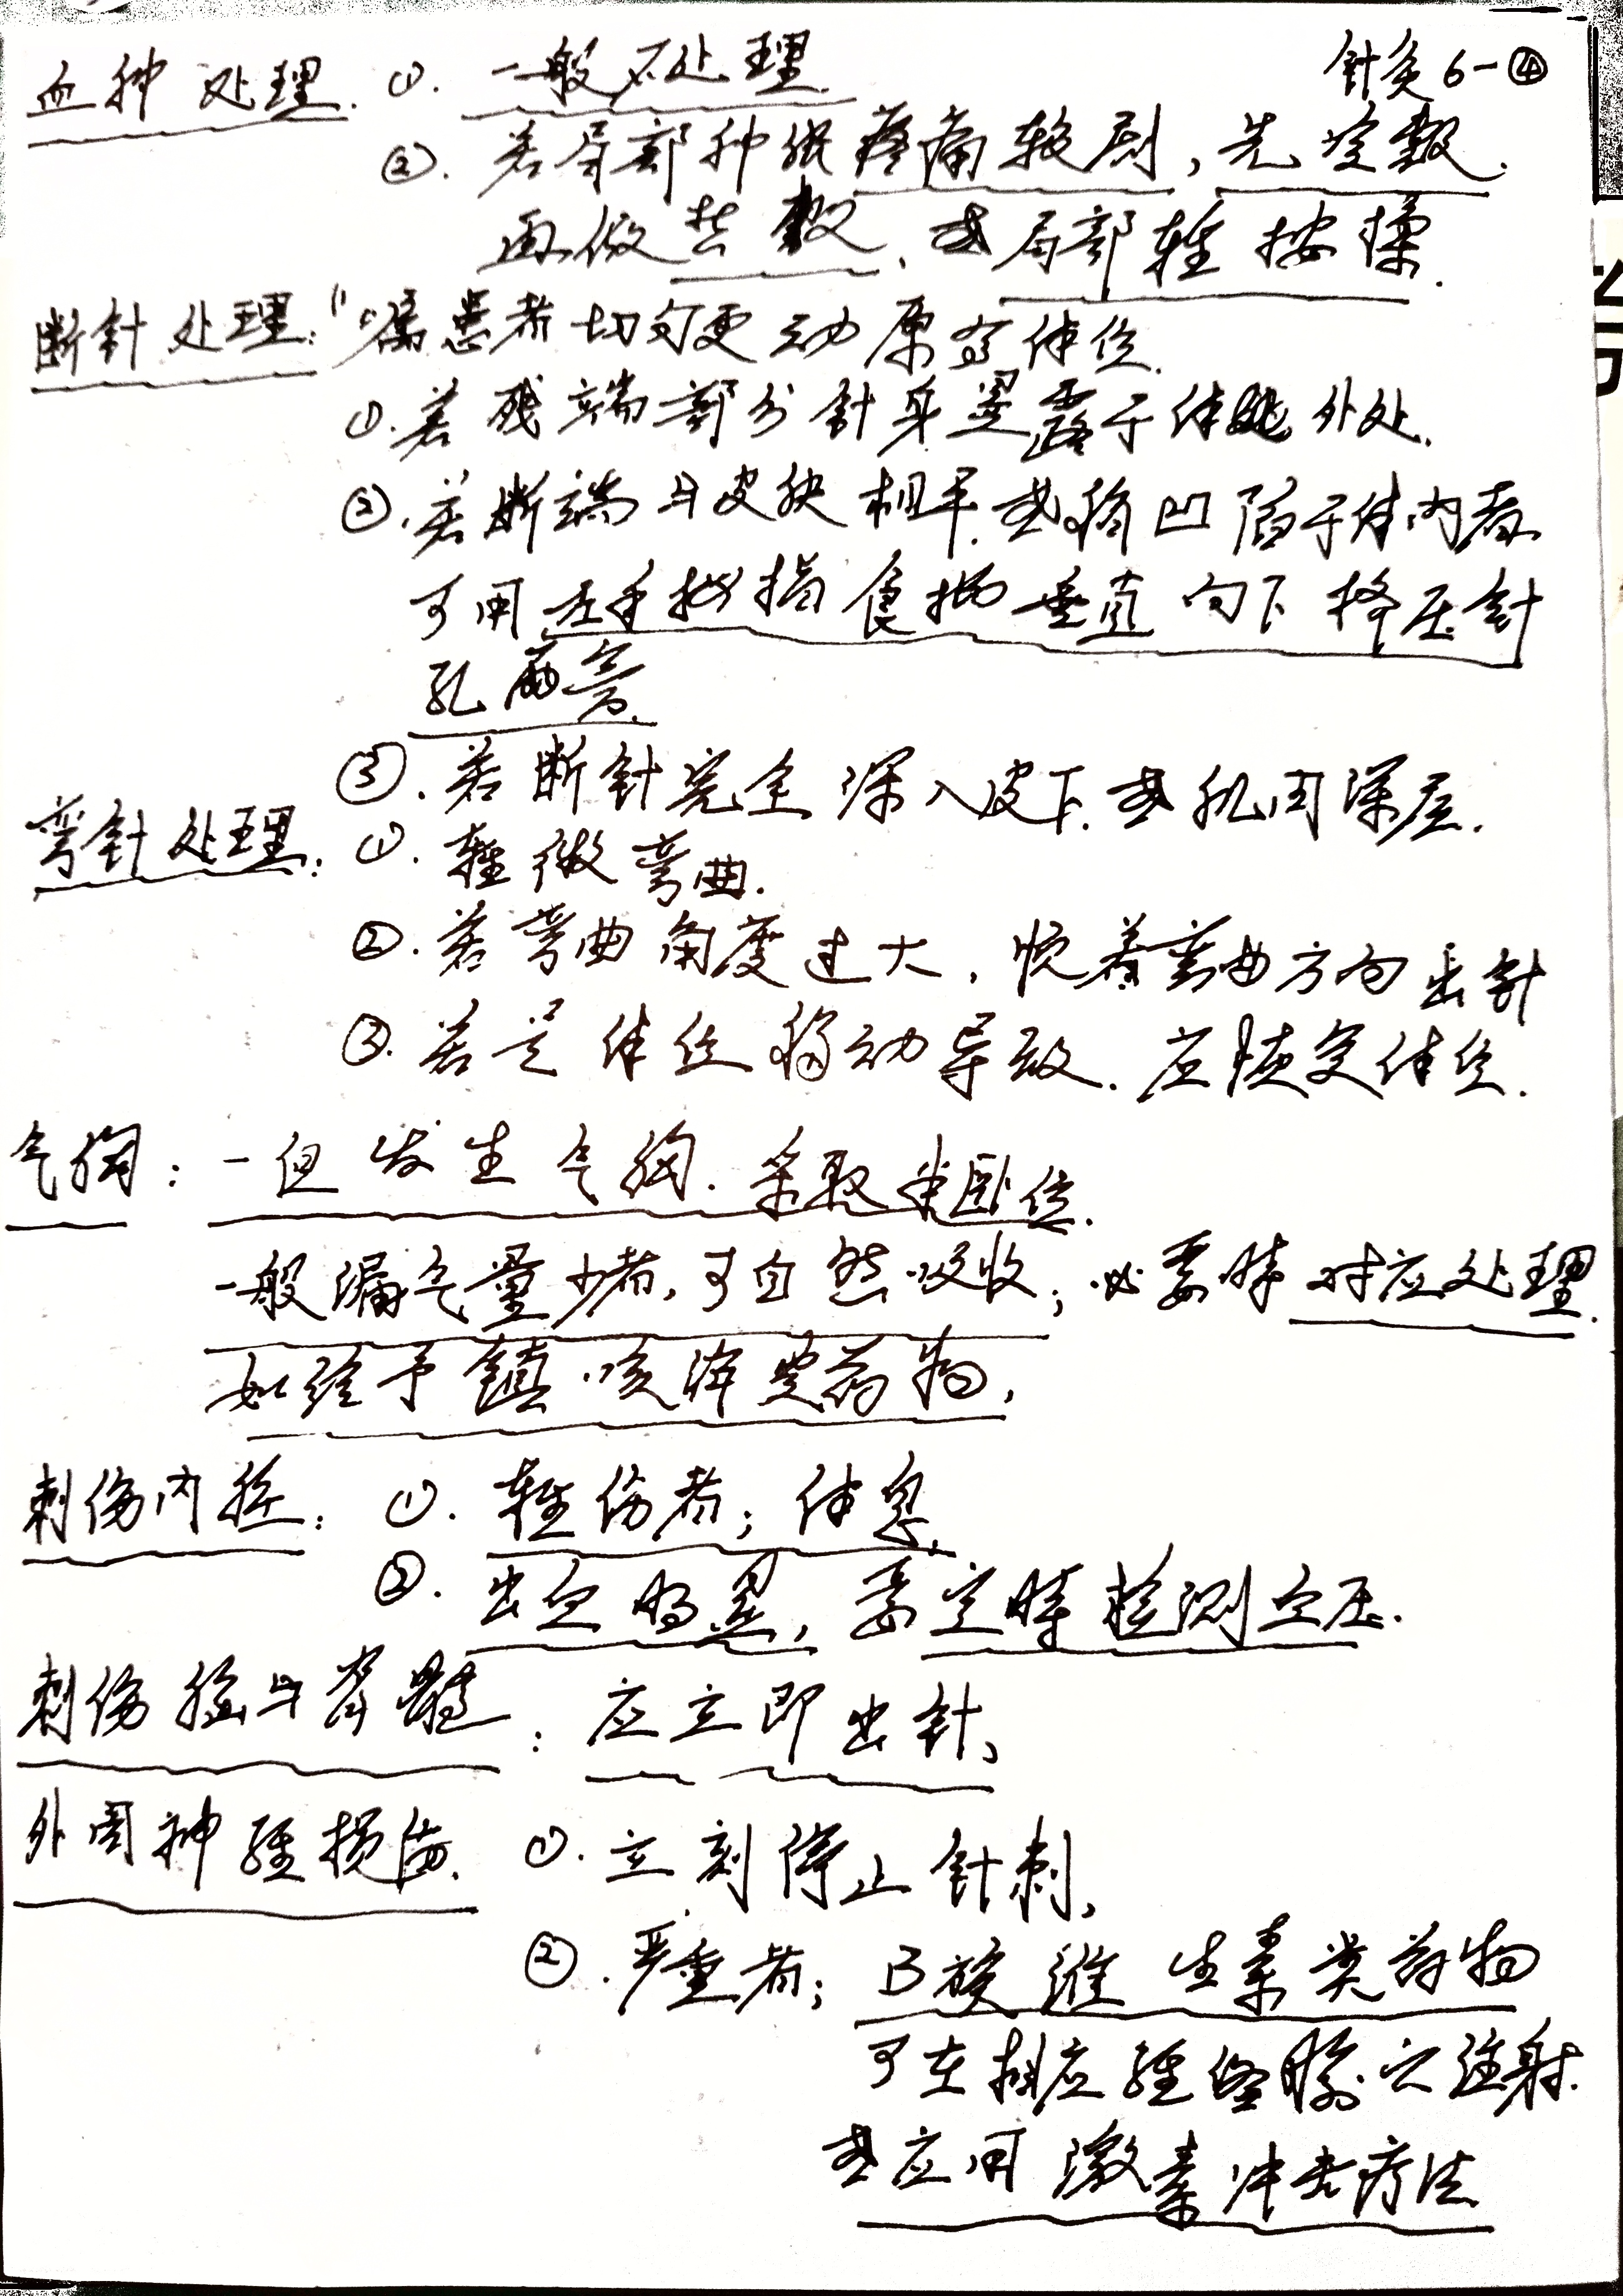 针灸6-④
血肿处理. ①. 一般不处理.
②. 若局部肿胀疼痛较剧, 先冷敷.
再做热敷, 或局部轻按揉.
断针处理: "嘱患者切勿更动原有体位.
①. 若残端部分针身显露于体外处.
②. 若断端与皮肤相平. 或稍凹陷于体内者
可用左手拇指食指垂直向下挤压针
孔两旁.
③. 若断针完全深入皮下. 或肌肉深层.
弯针处理: ①. 轻微弯曲.
②. 若弯曲角度过大, 顺着弯曲方向出针
③. 若是体位移动导致. 应恢复体位.
气胸: 一旦发生气胸. 采取半卧位.
一般漏气量少者, 可自然吸收; 必要时对应处理.
如给予镇咳消炎药物,
刺伤内脏: ①. 轻伤者; 休息.
②. 出血明显, 要定时检测血压.
刺伤脑与脊髓: 应立即出针.
外周神经损伤. ①. 立刻停止针刺.
②. 严重者; B族维生素类药物
可在相应经络腧穴注射.
或应用激素冲击疗法